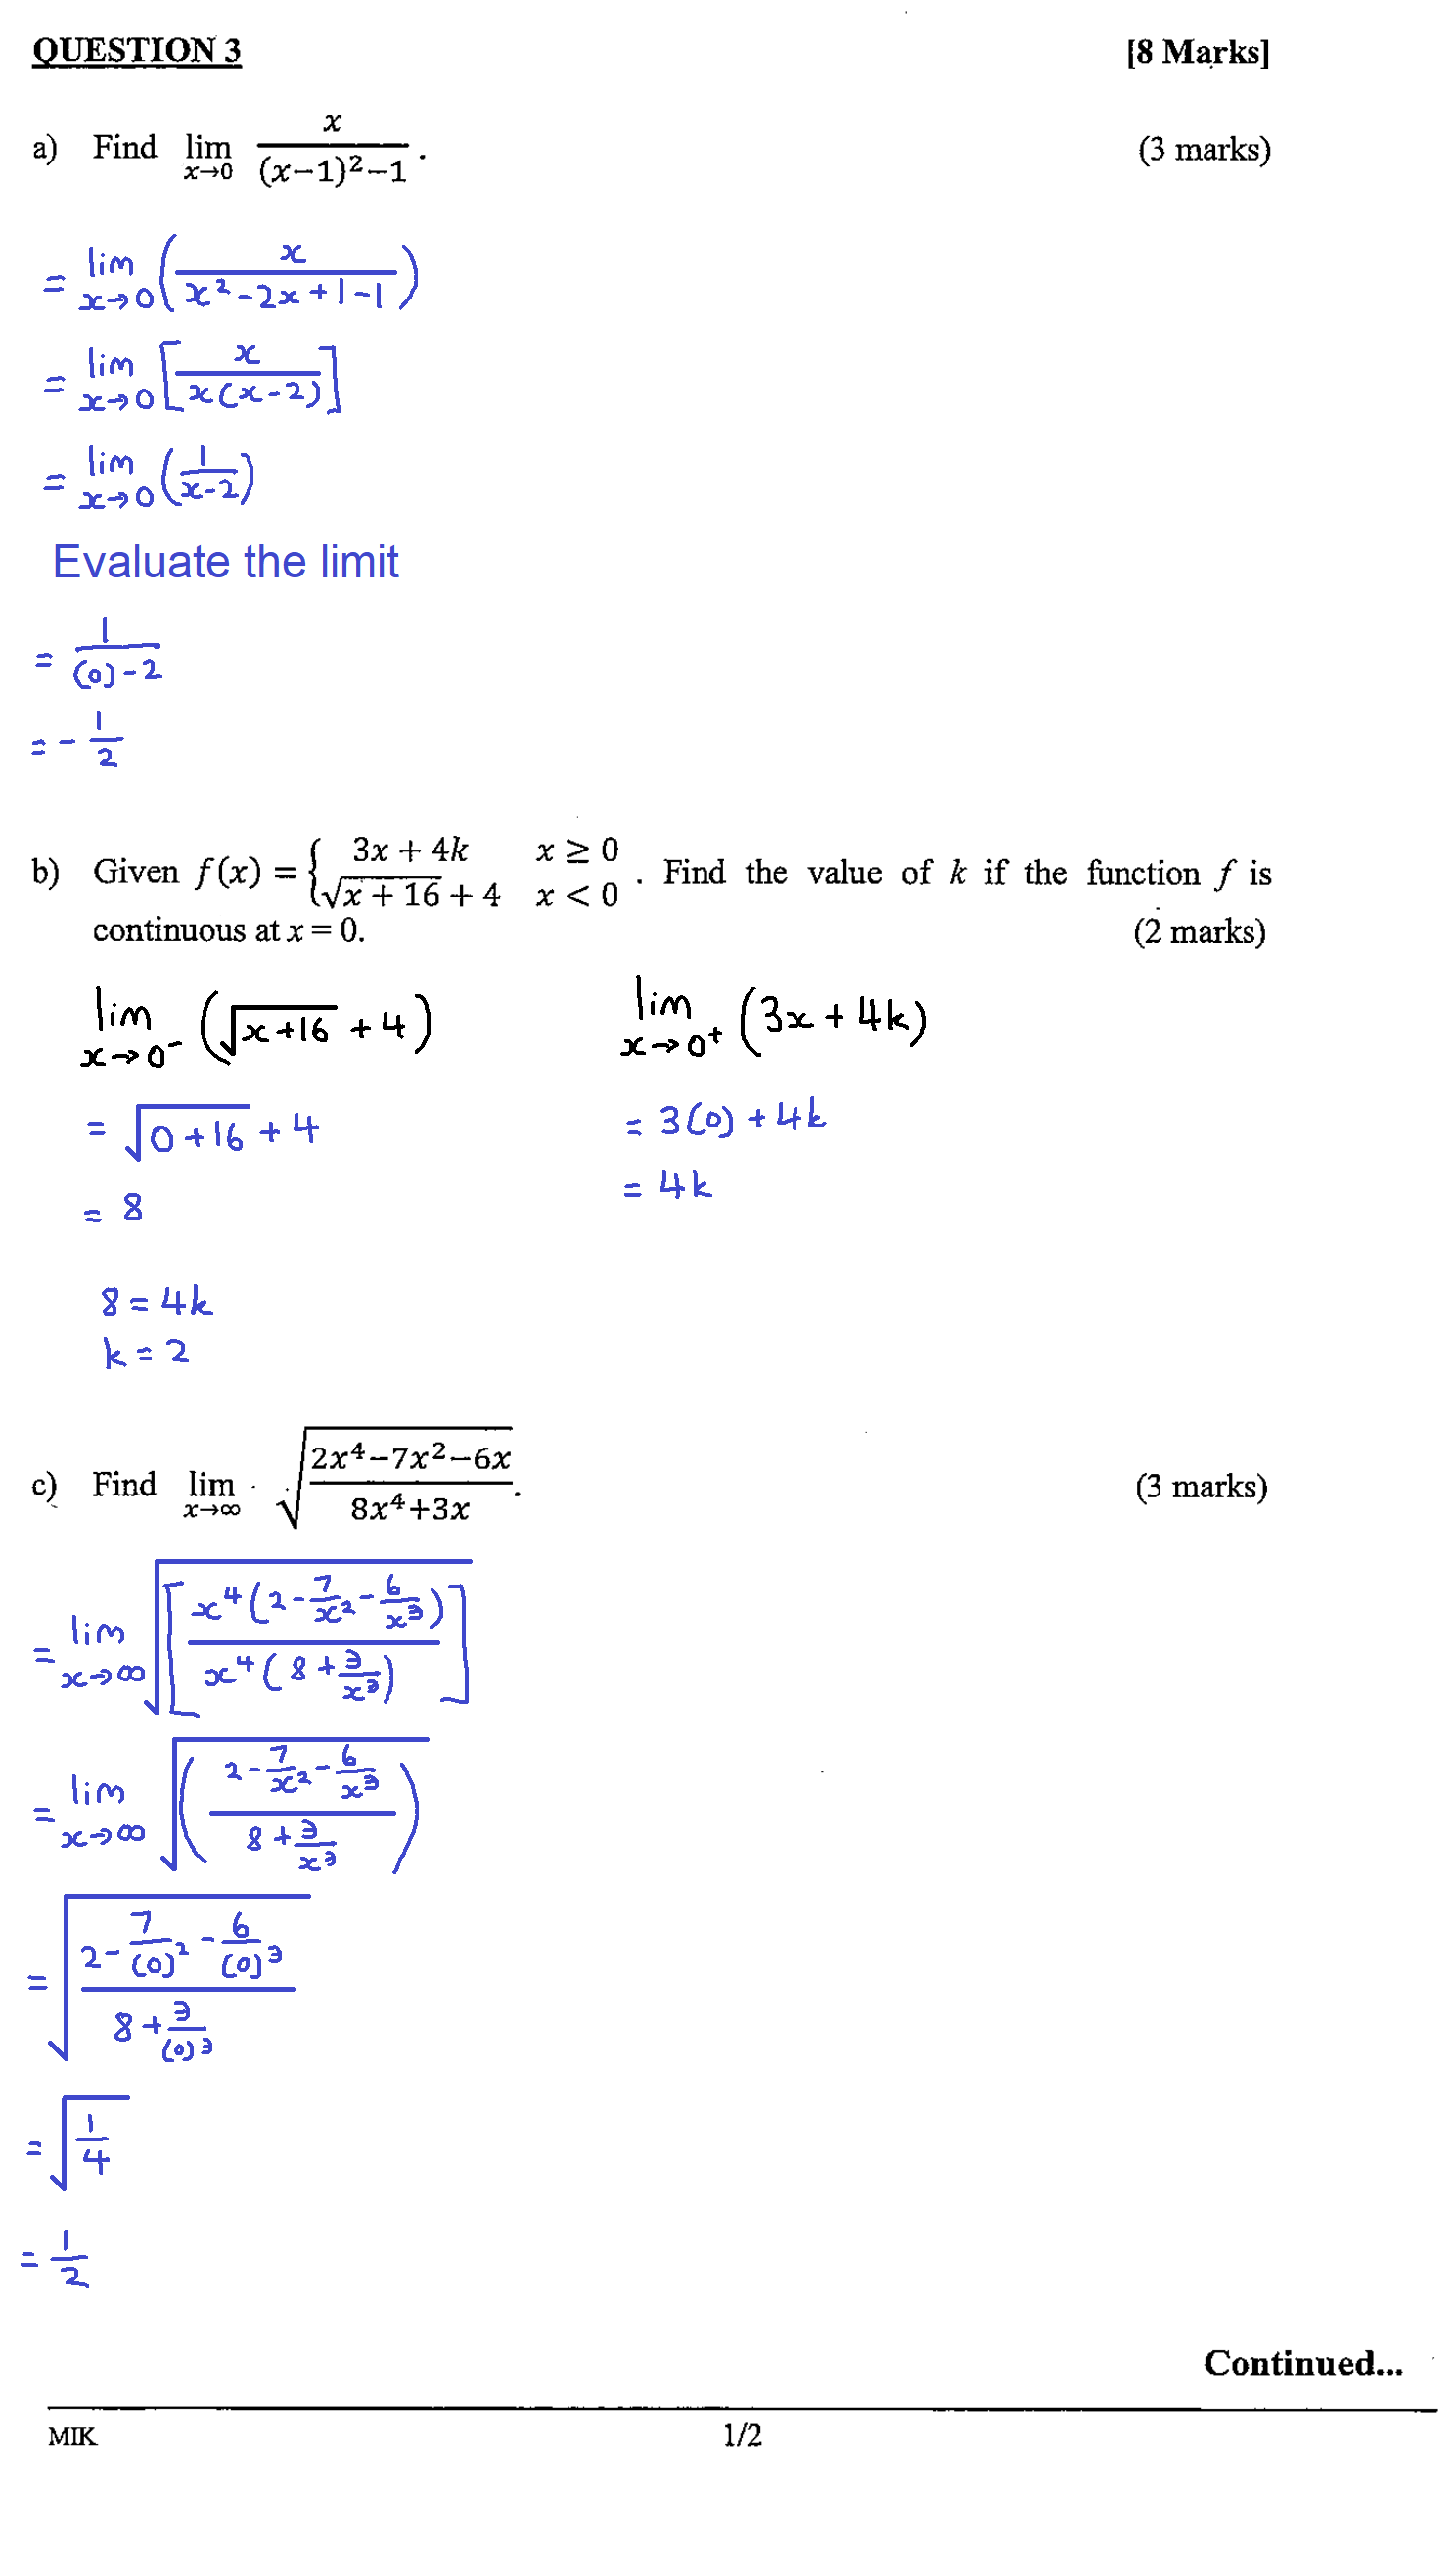 QUESTION 3 [8 Marks]
a) Find lim x→0 x/((x−1)²−1). (3 marks)
= lim x→0 (x/(x²-2x+1-1))
= lim x→0 [x/(x(x-2))]
= lim x→0 (1/(x-2))
Evaluate the limit
= 1/((0)-2)
= -1/2
b) Given f(x) = { 3x + 4k x ≥ 0; √(x + 16) + 4 x < 0 . Find the value of k if the function f is
continuous at x = 0. (2 marks)
lim x→0⁻ (√(x+16) + 4) lim x→0⁺ (3x + 4k)
= √(0+16) + 4 = 3(0) + 4k
= 8 = 4k
8 = 4k
k = 2
c) Find lim x→∞ √((2x⁴−7x²−6x)/(8x⁴+3x)). (3 marks)
= lim x→∞ √[x⁴(2-7/x²-6/x³)/(x⁴(8+3/x³))]
= lim x→∞ √((2-7/x²-6/x³)/(8+3/x³))
= √((2-7/(0)²-6/(0)³)/(8+3/(0)³))
= √(1/4)
= 1/2
Continued...
MIK 1/2